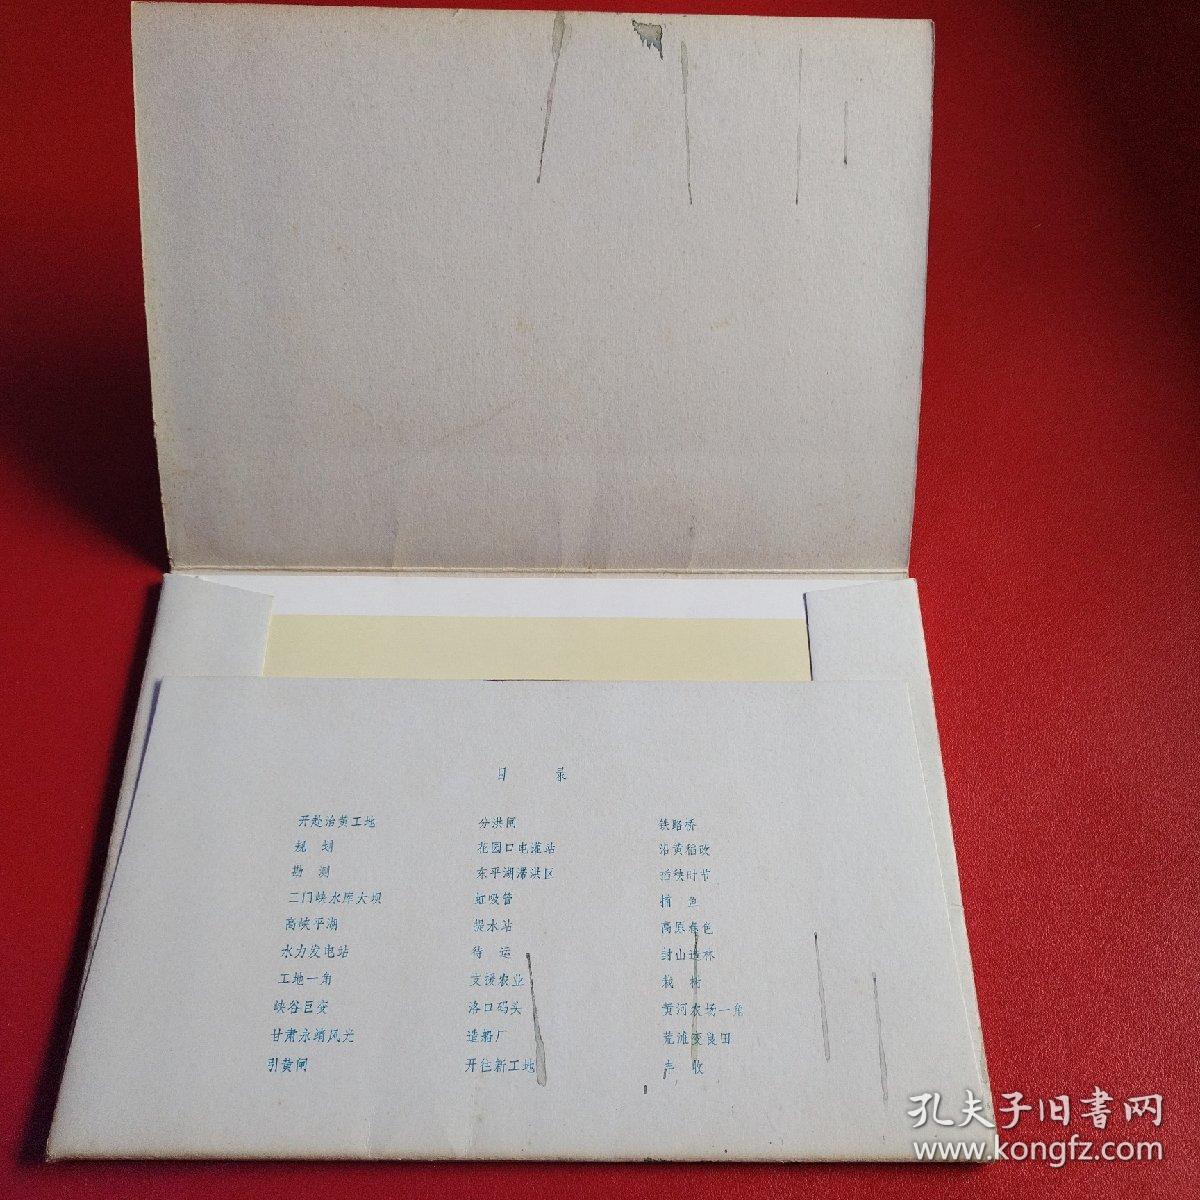 目 录
开赴治黄工地
规 划
勘 测
三门峡水库大坝
高峡平湖
水力发电站
工地一角
峡谷巨变
甘肃永靖风光
引黄闸
分洪闸
花园口电灌站
东平湖滞洪区
虹吸管
提水站
待 运
支援农业
洛口码头
造船厂
开往新工地
铁路桥
沿黄稻改
插秧时节
捕 鱼
高原春色
封山造林
黄河农场一角
荒滩变良田
丰 收
孔夫子旧書网
www.kongfz.com